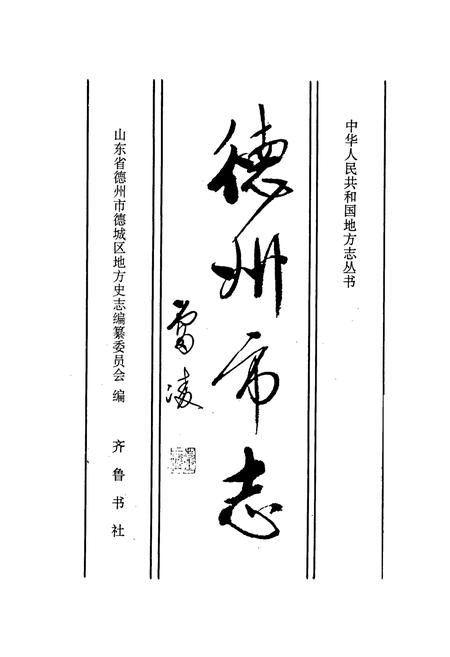 中华人民共和国地方志丛书
德州市志
雷凌
山东省德州市德城区地方史志编纂委员会 编
齐鲁书社